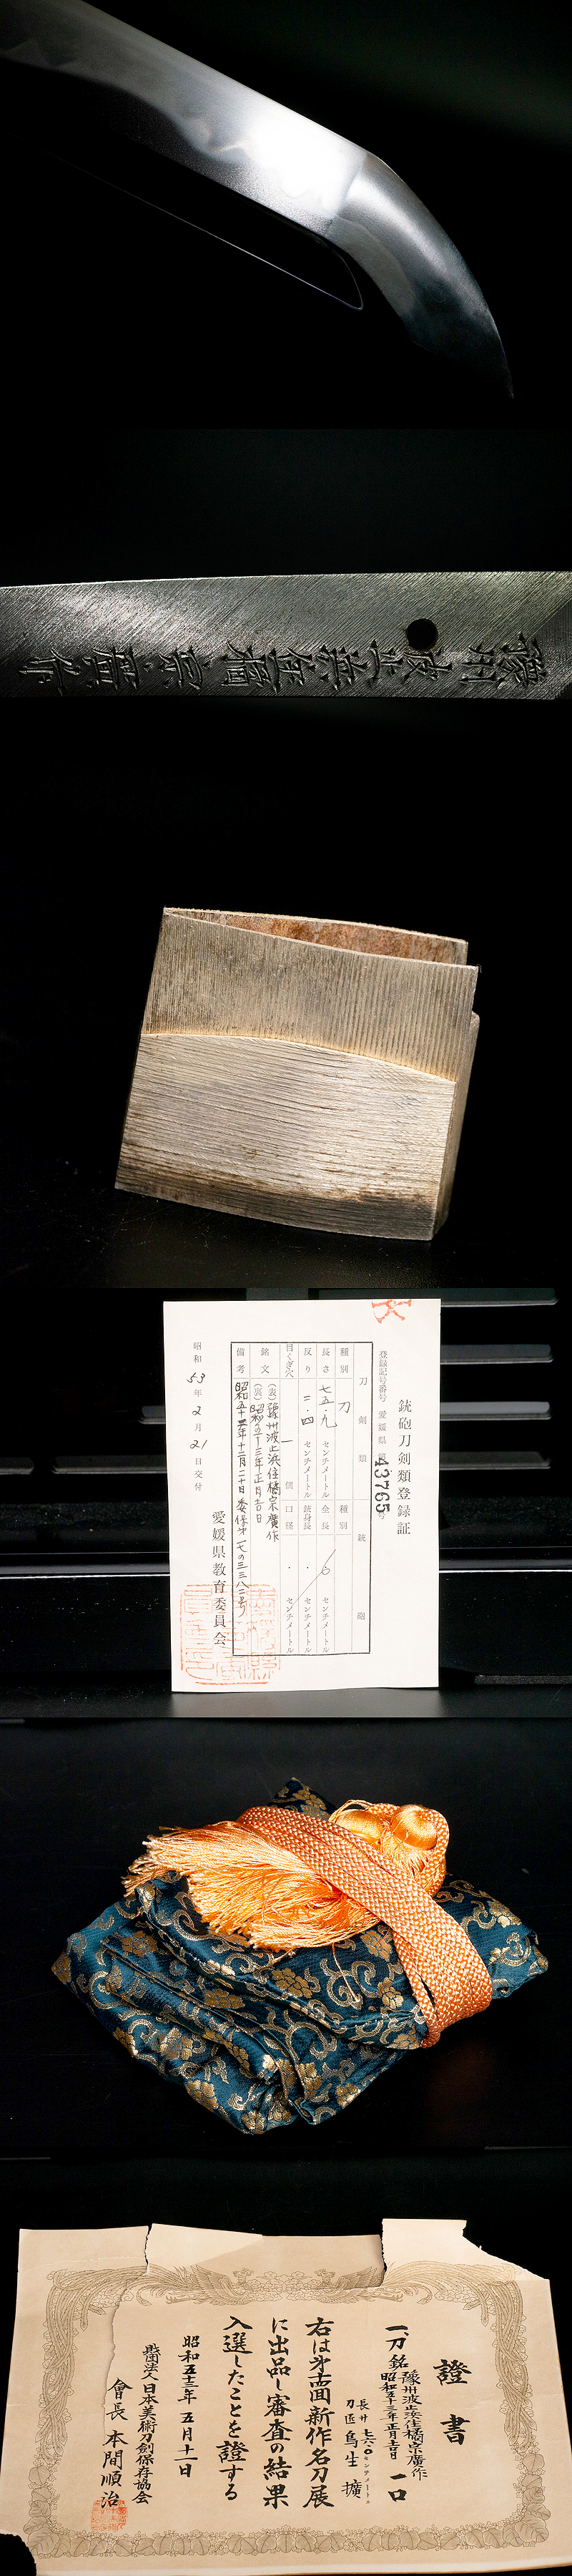 豫州波止浜住橘宗廣作
銃砲刀剣類登録証
登録記号番号 愛媛県 第43765号
刀剣類 銃砲
種別 刀 種別
長さ 七五・九 センチメートル 全長 センチメートル
反り 二・四 センチメートル 銃身長 ・ センチメートル
目くぎ穴 一 個 口径 ・ センチメートル
銘文 (表) 豫州波止浜住橘宗廣作
(裏) 昭和五十三年正月吉日
備考
昭和53年2月21日交付
愛媛県教育委員会
證書
一、刀 銘 豫州波止浜住橘宗廣作 一口
昭和五十三年正月吉日
長サ 七六・〇センチメートル
刀匠 鳥生 擴
右は第十四回新作名刀展
に出品し審査の結果
入選したことを證する
昭和五十三年五月十一日
財団法人日本美術刀剣保存協会
會長 本間順治